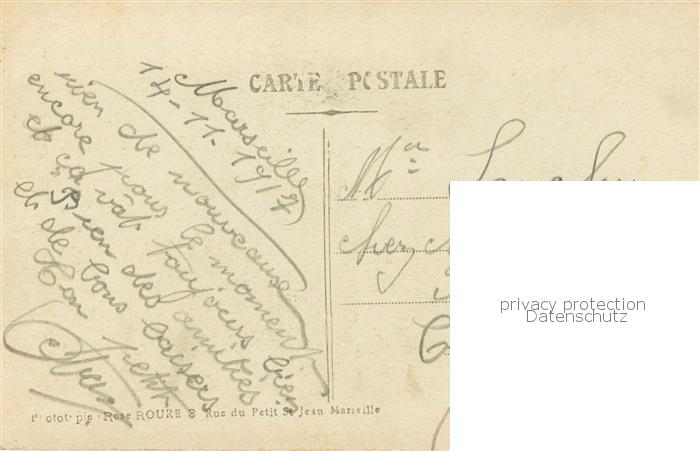 CARTE POSTALE
Marseille
14-11-1917
rien de nouveause
encore pour le moment
et ça vat toujours bien
Bien des amitiés
et de bons baisers
Ton petit
Mr
chez
privacy protection
Datenschutz
Phototypie Rose ROURE 8 Rue du Petit St Jean Marseille